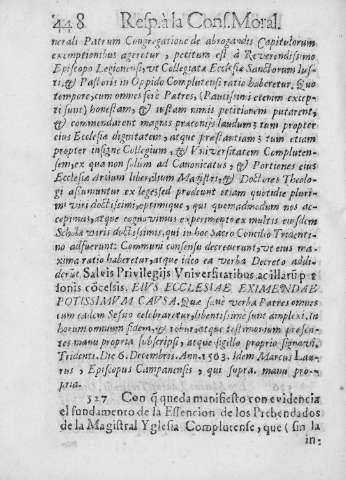 448 Resp. à la Cons. Moral.
nerali Patrum Congregatione de abrogandis Capitulorum
exemptionibus ageretur, petitum est à Reverendissimo
Episcopo Legionensi, vt Collegiatæ Ecclesiæ Sanctorum Ius-
ti, & Pastoris in Oppido Complutensi ratio haberetur. Quo
tempore, cum omnes ferè Patres, (Paucissimi etenim excep-
ti sunt) honestam, & iustam nimis petitionem putarent,
& commendarent magnis praconijs laudum; tum propter
eius Ecclesiæ dignitatem, atque præstantiam; tum etiam
propter insigne Collegium, & Vniversitatem Compluten-
sem, ex qua non solum ad Canonicatus, & Portiones eius
Ecclesiæ Artium liberalium Magistri, & Doctores Theolo-
gi assumuntur ex lege, sed prodeunt etiam quotidie pluri-
mi viri doctissimi, optimique, qui quemadmodum nos ac-
cepimus, atque cognovimus experimento ex multis eiusdem
Scholæ viris doctissimis, qui in hoc Sacro Concilio Tridenti-
no adfuerunt: Communi consensu decreverunt, vt eius ma-
xima ratio haberetur, atque ideo ea verba Decreto addi-
derunt Salvis Privilegijs Vniversitatibus ac illarũ p
sonis cõcessis. EIVS ECCLESIAE EXIMENDAE
POTISSIMVM CAVSA. Que sanè verba Patres omnes
cum eadem Sesio celebraretur, libentissimè sunt amplexi. In
horum omnium fidem, & robur, atque testimonium præsen-
tes manu propria subscripsi, atque sigillo proprio signavi.
Tridenti. Die 6. Decembris. Ann. 1563. Idem Marcus Lau-
rus, Episcopus Campanensis, qui supra. manu pro-
pria.
327 Con q̃ queda manifiesto con evidencia
el fundamento de la Essencion de los Prebendados
de la Magistral Yglesia Complutense, que (sin la
in-